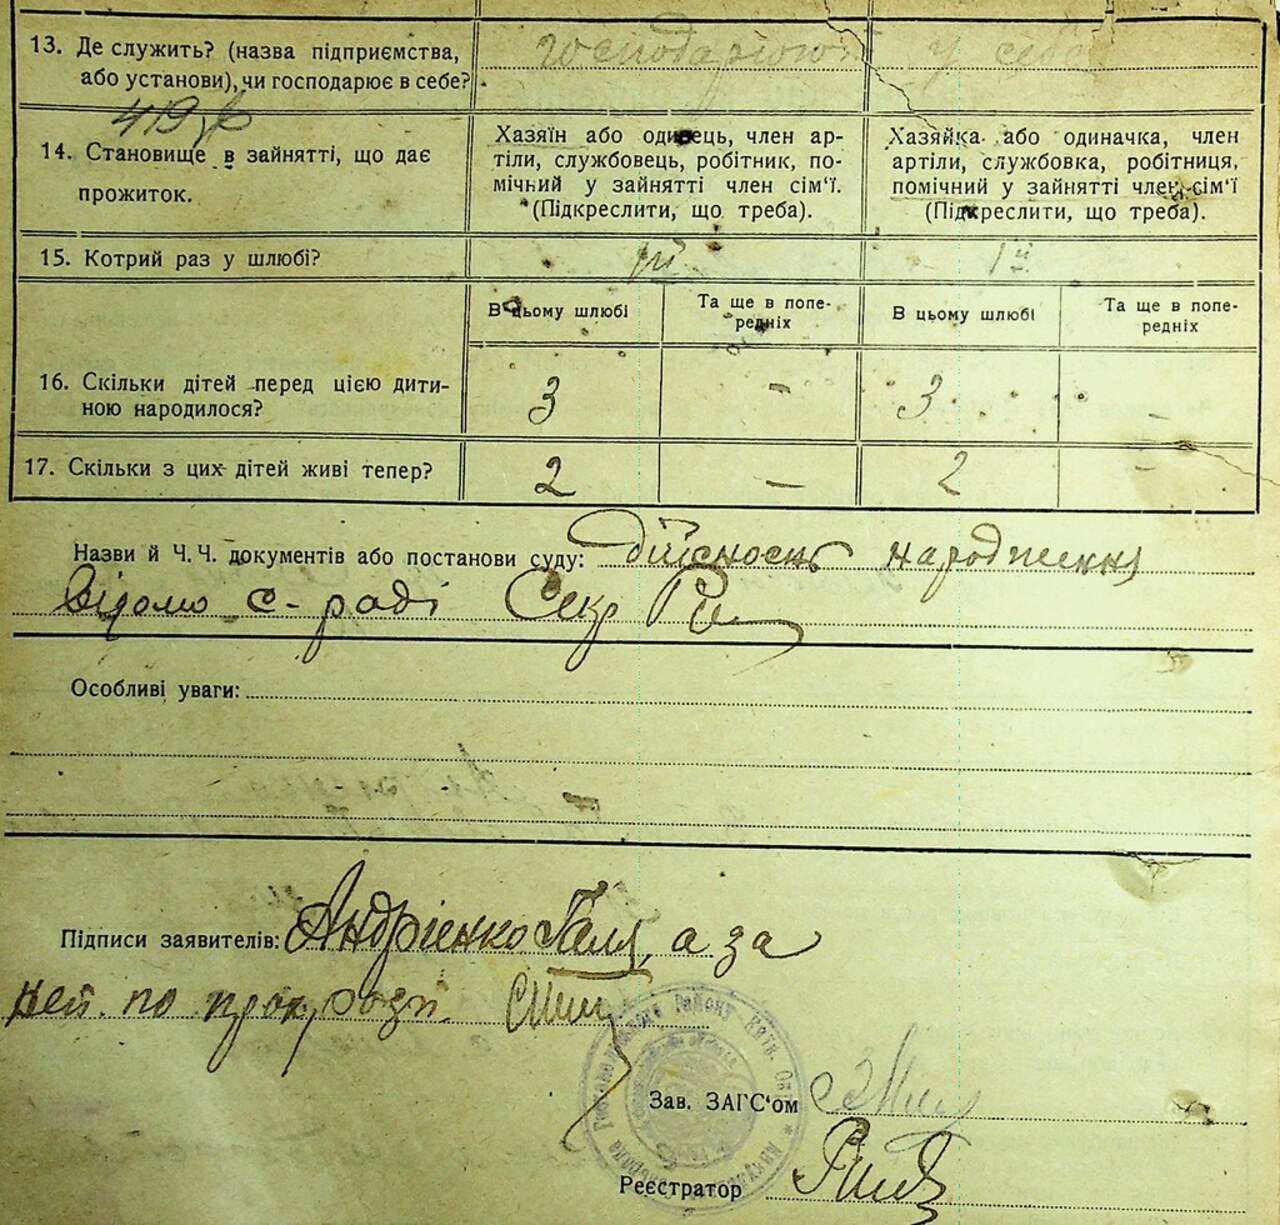 13. Де служить? (назва підприємства, господарюю у себе
або установи), чи господарює в себе?
419
14. Становище в зайнятті, що дає прожиток.
Хазяїн або одинець, член ар-
тілі, службовець, робітник, по-
мічний у зайнятті член сім'ї.
(Підкреслити, що треба).
Хазяйка або одиначка, член
артілі, службовка, робітниця,
помічний у зайнятті член сім'ї
(Підкреслити, що треба).
15. Котрий раз у шлюбі? 1й 1й
В цьому шлюбі
Та ще в попе-
редніх
В цьому шлюбі
Та ще в попе-
редніх
16. Скільки дітей перед цією дити-
ною народилося?
3 - 3 -
17. Скільки з цих дітей живі тепер? 2 - 2 -
Назви й Ч. Ч. документів або постанови суду: дійсность народження
Відомо с-раді Секр
Особливі уваги:
Підписи заявителів: Андрієнко Галя, а за
ней по
Зав. ЗАГС'ом
Реєстратор